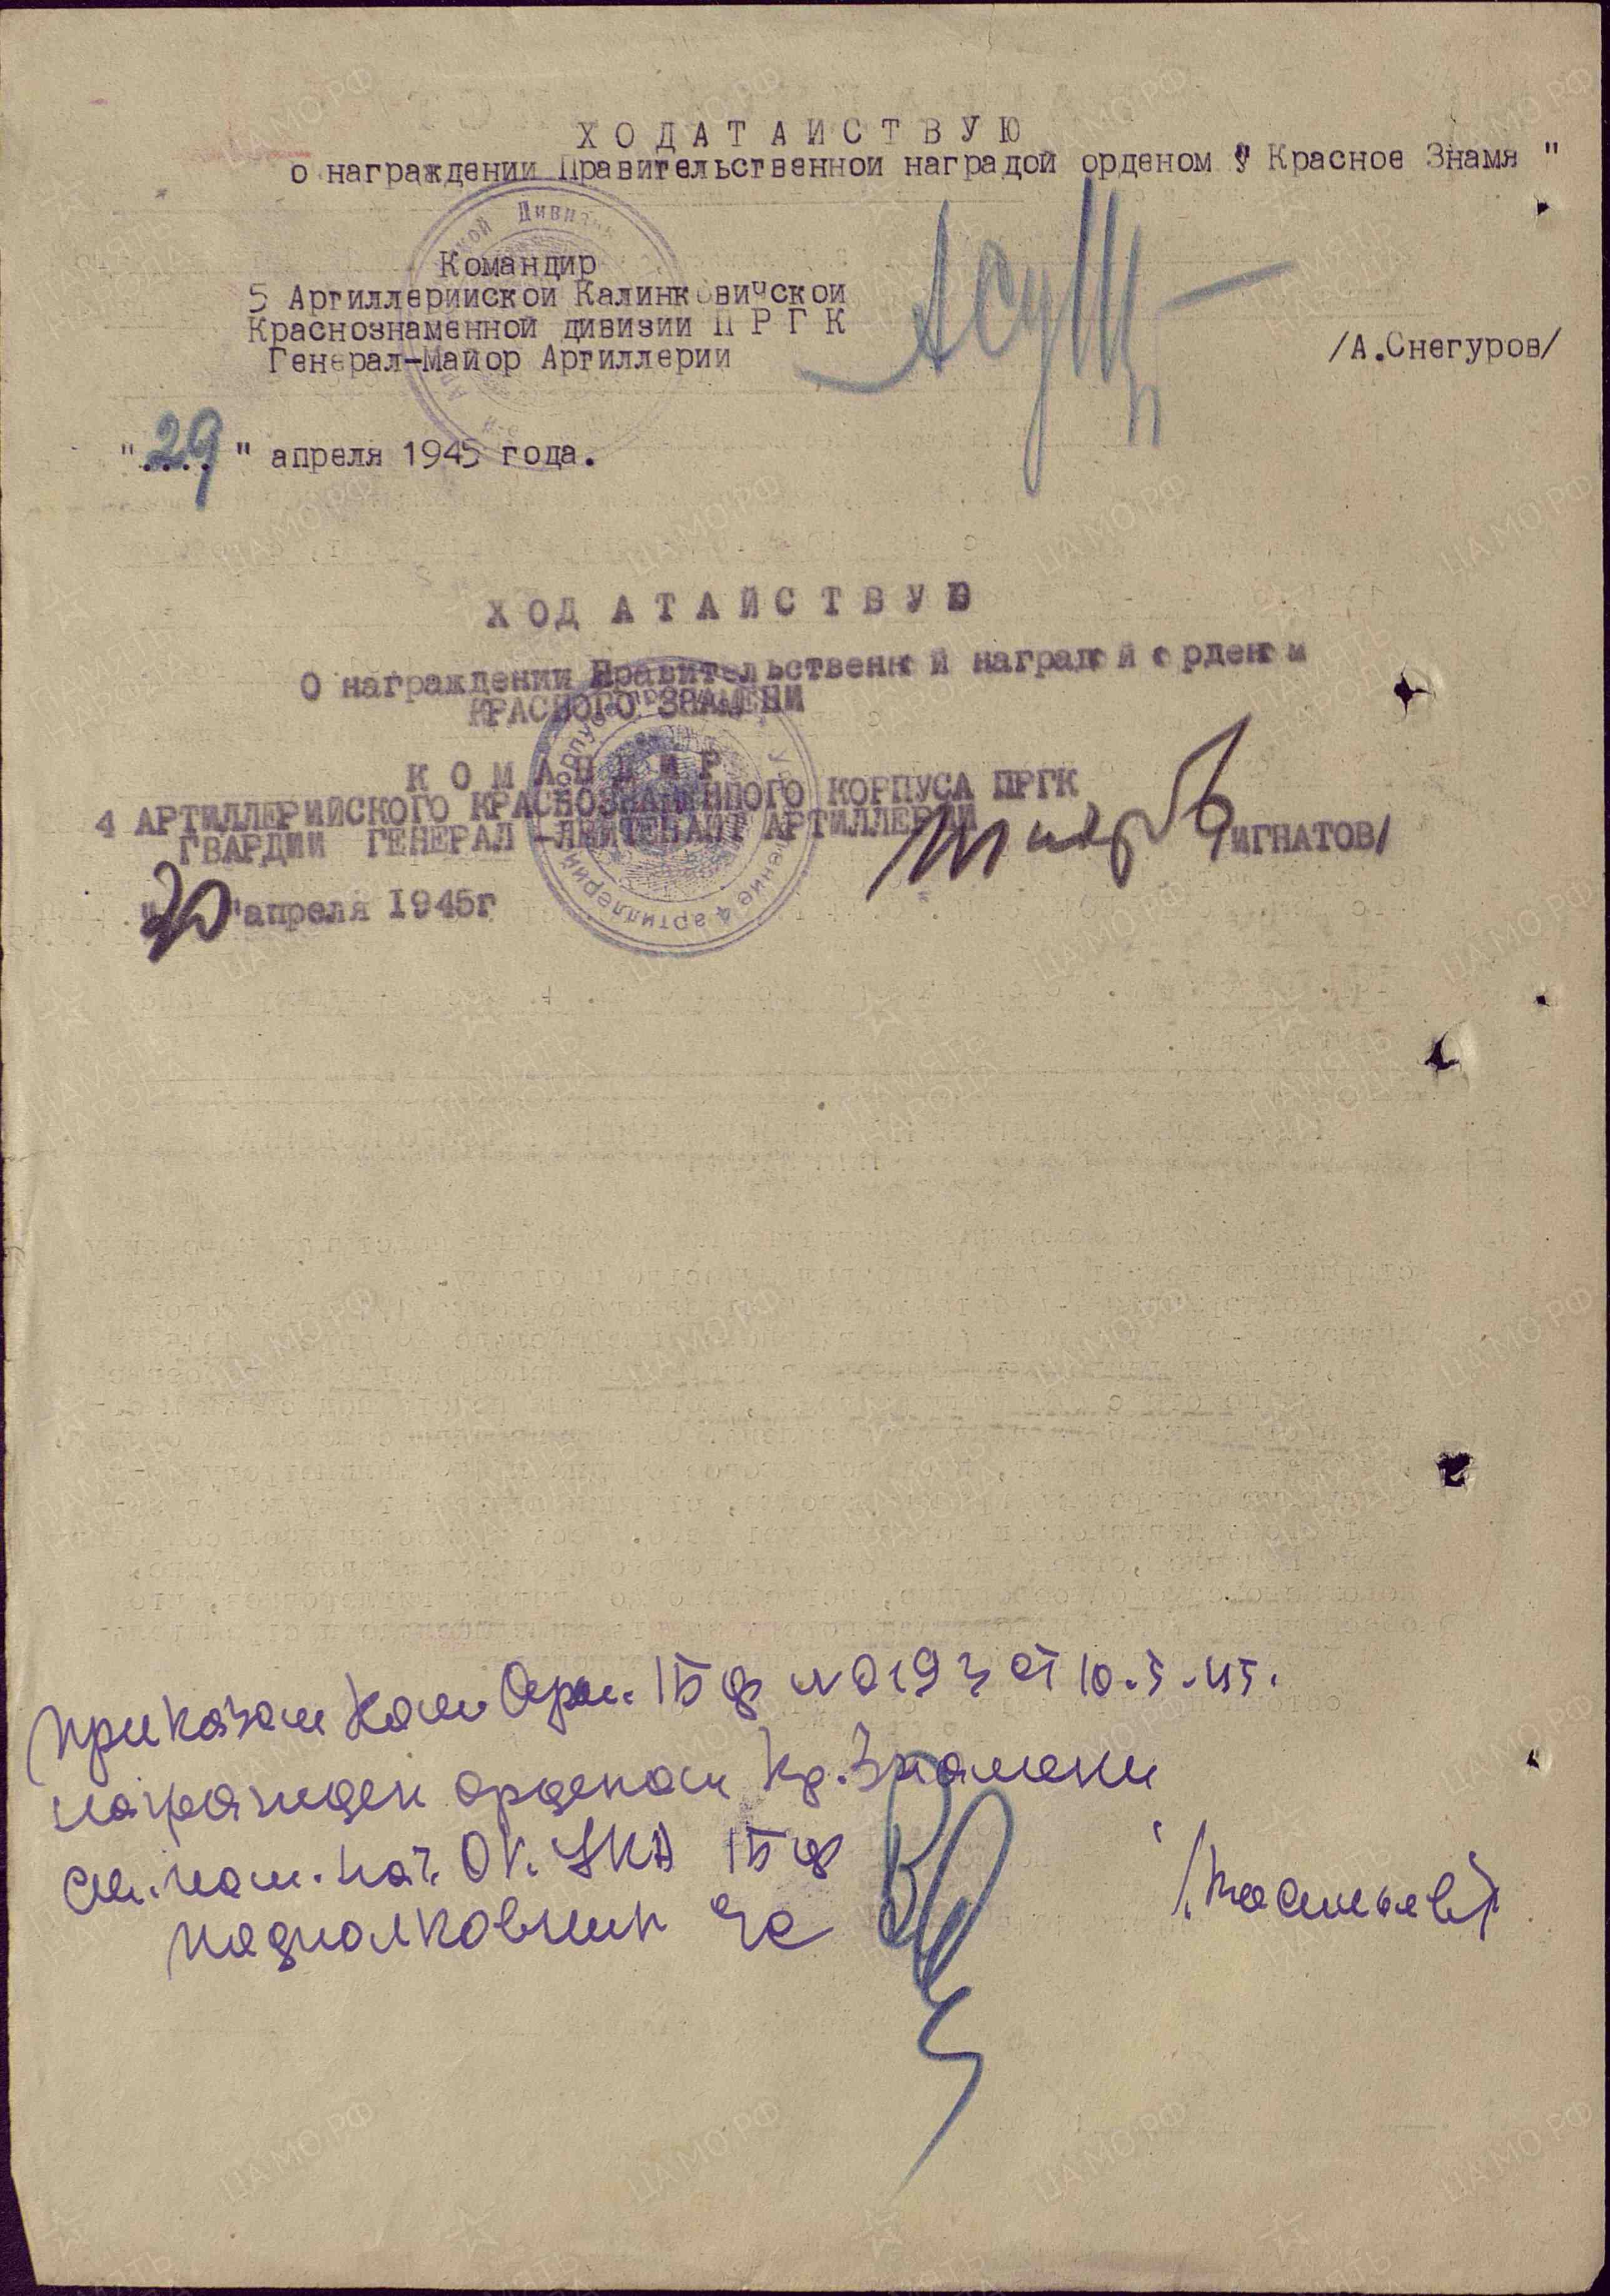 ХОДАТАИСТВУЮ
о награждении Правительственнои наградой орденом " Красное Знамя "
Командир
5 Артиллериискои Калинковичскои
Краснознаменной дивизии П Р Г К
Генерал-Майор Артиллерии
/А.Снегуров/
"29" апреля 1945 года.
ХОДАТАЙСТВУЮ
О награждении Правительственной наградой орденом
КРАСНОГО ЗНАМЕНИ
КОМАНДИР
4 АРТИЛЛЕРИЙСКОГО КРАСНОЗНАМЕННОГО КОРПУСА ПРГК
ГВАРДИИ ГЕНЕРАЛ-ЛЕЙТЕНАНТ АРТИЛЛЕРИИ
ИГНАТОВ/
"30" апреля 1945г
Приказом Ком. Арт. 1БФ № 0193 от 10.5.45.
награжден орденом Кр. Знамени
см. пом. нач. ОК. УКА 1БФ
подполковник